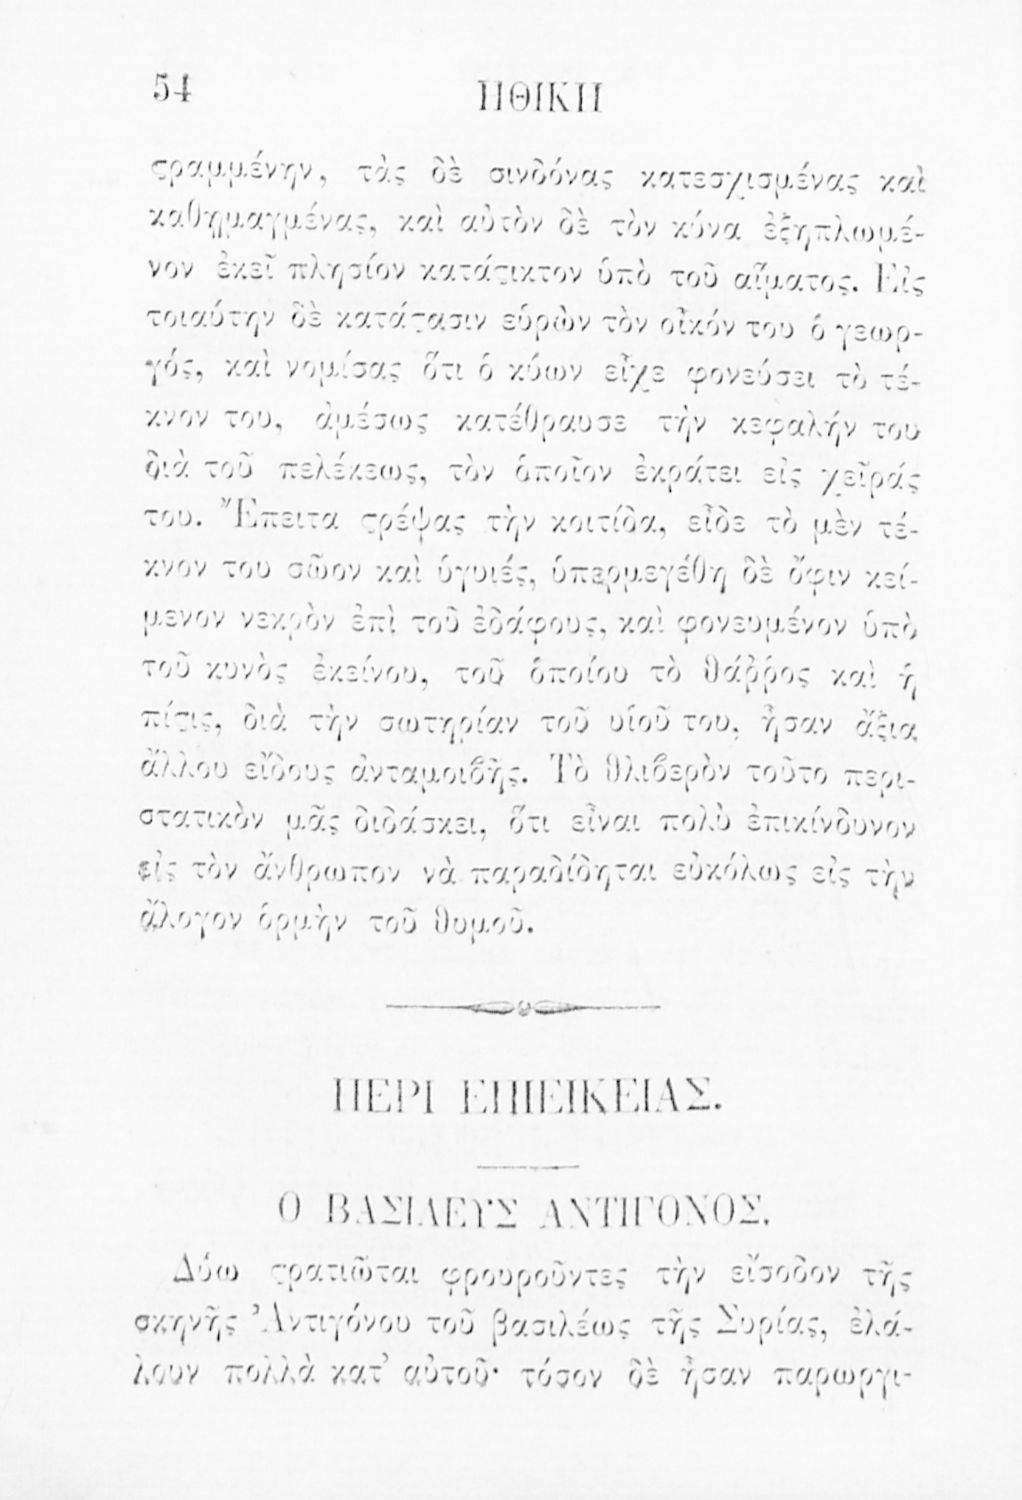 54
ΗΘΙΚΗ
ϛραμμένην, τὰς δὲ σινδόνας κατεσχισμένας καὶ
καθῃμαγμένας, καὶ αὐτὸν δὲ τὸν κύνα ἐξηπλωμέ-
νον ἐκεῖ πλησίον κατάϛικτον ὑπὸ τοῦ αἵματος. Εἰς
τοιαύτην δὲ κατάϛασιν εὑρὼν τὸν οἶκόν του ὁ γεωρ-
γός, καὶ νομίσας ὅτι ὁ κύων εἶχε φονεύσει τὸ τέ-
κνον του, ἀμέσως κατέθραυσε τὴν κεφαλήν του
διὰ τοῦ πελέκεως, τὸν ὁποῖον ἐκράτει εἰς χεῖράς
του. Ἔπειτα ϛρέψας τὴν κοιτίδα, εἶδε τὸ μὲν τέ-
κνον του σῶον καὶ ὑγυιές, ὑπερμεγέθη δὲ ὄφιν κεί-
μενον νεκρὸν ἐπὶ τοῦ ἐδάφους, καὶ φονευμένον ὑπὸ
τοῦ κυνὸς ἐκείνου, τοῦ ὁποίου τὸ θάῤῥος καὶ ἡ
πίϛις, διὰ τὴν σωτηρίαν τοῦ υἱοῦ του, ἦσαν ἄξια
ἄλλου εἴδους ἀνταμοιβῆς. Τὸ θλιβερὸν τοῦτο περι-
στατικὸν μᾶς διδάσκει, ὅτι εἶναι πολὺ ἐπικίνδυνον
εἰς τὸν ἄνθρωπον νὰ παραδίδηται εὐκόλως εἰς τὴν
ἄλογον ὁρμὴν τοῦ θυμοῦ.
ΠΕΡΙ ΕΠΙΕΙΚΕΙΑΣ.
Ο ΒΑΣΙΛΕΥΣ ΑΝΤΙΓΟΝΟΣ.
Δύω ϛρατιῶται φρουροῦντες τὴν εἴσοδον τῆς
σκηνῆς Ἀντιγόνου τοῦ βασιλέως τῆς Συρίας, ἐλά-
λουν πολλὰ κατ᾽ αὐτοῦ· τόσον δὲ ἦσαν παρωργι-